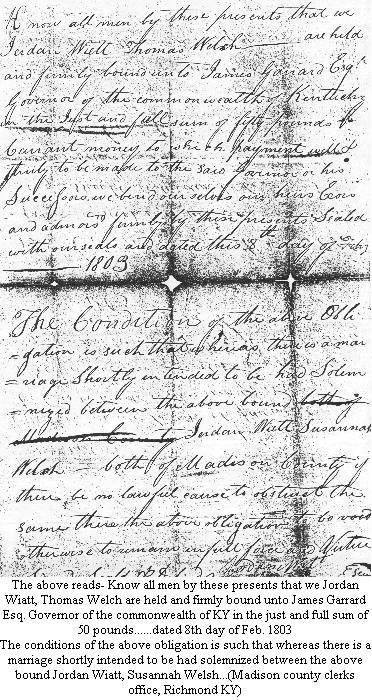 Know all men by these presents that we
Jordan Wiett Thomas Welsh are held
and firmly bound unto James Garrard Esqr.
Governor of the commonwealth of Kentucky
in the Just and full sum of fifty pounds
Currant money to which payment well &
truly to be made to the said Governor or his
Successors, we bind ourselves our heirs Exors
and admors firmly by these presents Sealed
with our seals and dated this 8th day of Feby
1803
The Condition of the above Obli
=gation is such that whereas there is a mar
=riage Shortly intended to be had Solem
=nized between the above bound both of
Madison County Jordan Wiett Susannah
Welsh both of Madison County if
there be no lawful cause to obstruct the
same then the above obligation to be void
otherwise to remain in full force and Virtue
The above reads- Know all men by these presents that we Jordan
Wiatt, Thomas Welch are held and firmly bound unto James Garrard
Esq. Governor of the commonwealth of KY in the just and full sum of
50 pounds......dated 8th day of Feb. 1803
The conditions of the above obligation is such that whereas there is a
marriage shortly intended to be had solemnized between the above
bound Jordan Wiatt, Susannah Welsh...(Madison county clerks
office, Richmond KY)